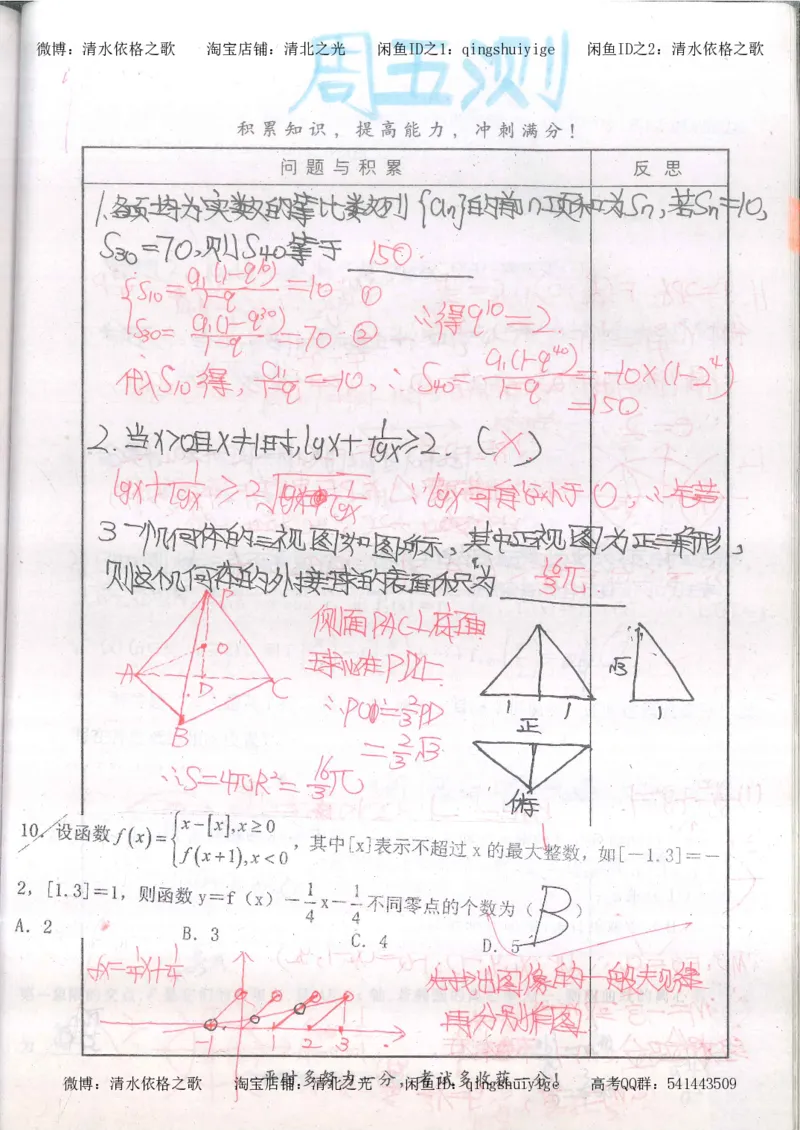 微博：清水依格之歌 淘宝店铺：清北之光 闲鱼ID之1：qingshuiyige 闲鱼ID之2：清水依格之歌
周五测
积累知识，提高能力，冲刺满分！
问题与积累 反思
1.各项均为实数的等比数列{an}的前n项和为Sn,若Sn=10,
S30=70,则S40等于 150.
{S10=a1(1-q^10)/1-q=10 ①
S30=a1(1-q^30)/1-q=70 ② ∴得q^10=2.
代入S10得, a1/1-q=-10, ∴S40=a1(1-q^40)/1-q=-10×(1-2^4)
=150.
2.当x>0且x≠1时,lgx+1/lgx≥2.（×）
lgx+1/lgx≥2√lgx·1/lgx ∴lgx可能小于0,
3 一个几何体的三视图如图所示,其中正视图为正三角形,
则这个几何体的外接球的表面积为 16/3π
P
侧面PAC⊥底面
O
A
球心在PD上
√3
D
C
1 1 1
∴PO=2/3PD
正
B
=2/3√3
∴S=4πR²=16/3π
俯
10．设函数f(x)={x-[x],x≥0
f(x+1),x<0 ，其中[x]表示不超过x的最大整数，如[－1.3]＝－
2，[1.3]＝1，则函数y＝f（x）－1/4x－1/4不同零点的个数为（B）
A．2 B．3 C．4 D．5
fx=1/4x+1/4
先找出图像的一般规律
再分别作图
-1 1 2 3
平时多努力一分，考试多收获一分！
微博：清水依格之歌 淘宝店铺：清北之光 闲鱼ID：qingshuiyige 高考QQ群：541443509